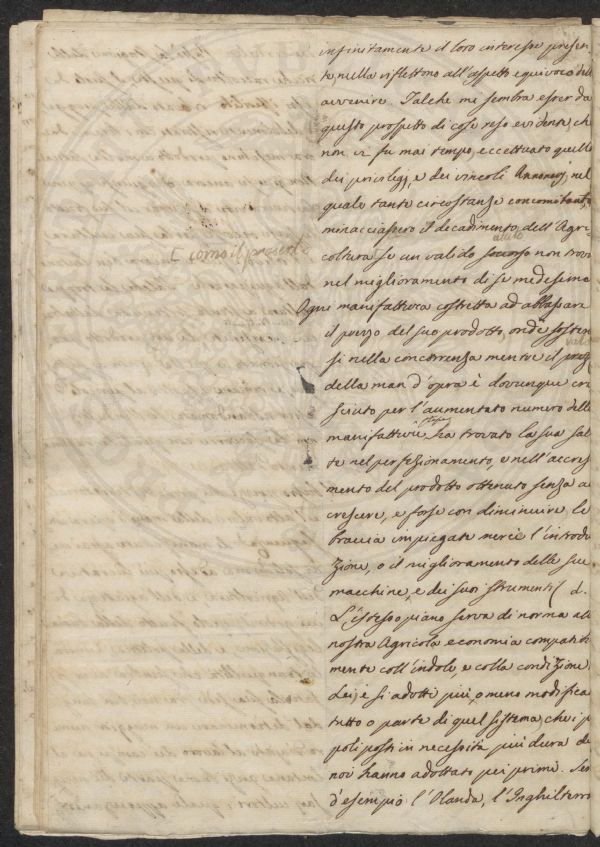 infinitamente il loro interesse presen-
te, nulla riflettono all'aspetto equivoco dell'
avvenire. Talchè mi sembra esser da
questo prospetto di cose reso evidente, che
non vi fu mai tempo, eccettuato quello
dei privilegj, e dei vincoli Annonarj, nel
quale tante circostanze concomitanti
minacciassero il decadimento dell'Agri-
coltura se un valido soccorso non trova
[ come il presente
nel miglioramento di se medesima
Ogni manifattura costretta ad abbassare
il prezzo del suo prodotto, onde sosten
si nella concorrenza mentre il prez
della man d'opera è dovunque cre
sciuto per l'aumentato numero delle
manifatture ha trovato la sua salu
te nel perfezionamento, e nell'accres
mento del prodotto ottenuto senza a
crescere, e forse con diminuire le
braccia impiegate mercè l'introdu
zione, o il miglioramento delle sue
macchine, e dei suoi istrumenti
L'istesso piano serva di norma alla
nostra Agricola economia compatibil
mente coll'indole, e colla condizione
Lei, e si adotti più, o meno modifica
tutto o parte di quel sistema, che i po
poli posti in necessità più dura di
noi hanno adottato pei primi. Ser
d'esempio l'Olanda, l'Inghilterra